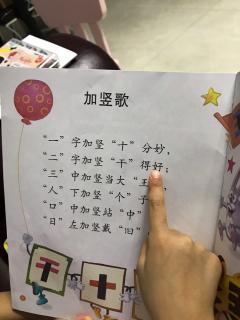 加竖歌
“一”字加竖“十”分妙，
“二”字加竖“干”得好；
“三”中加竖当大“王
“人”下加竖“个”子
“口”中加竖站“中”
“日”左加竖戴“旧”
干
十